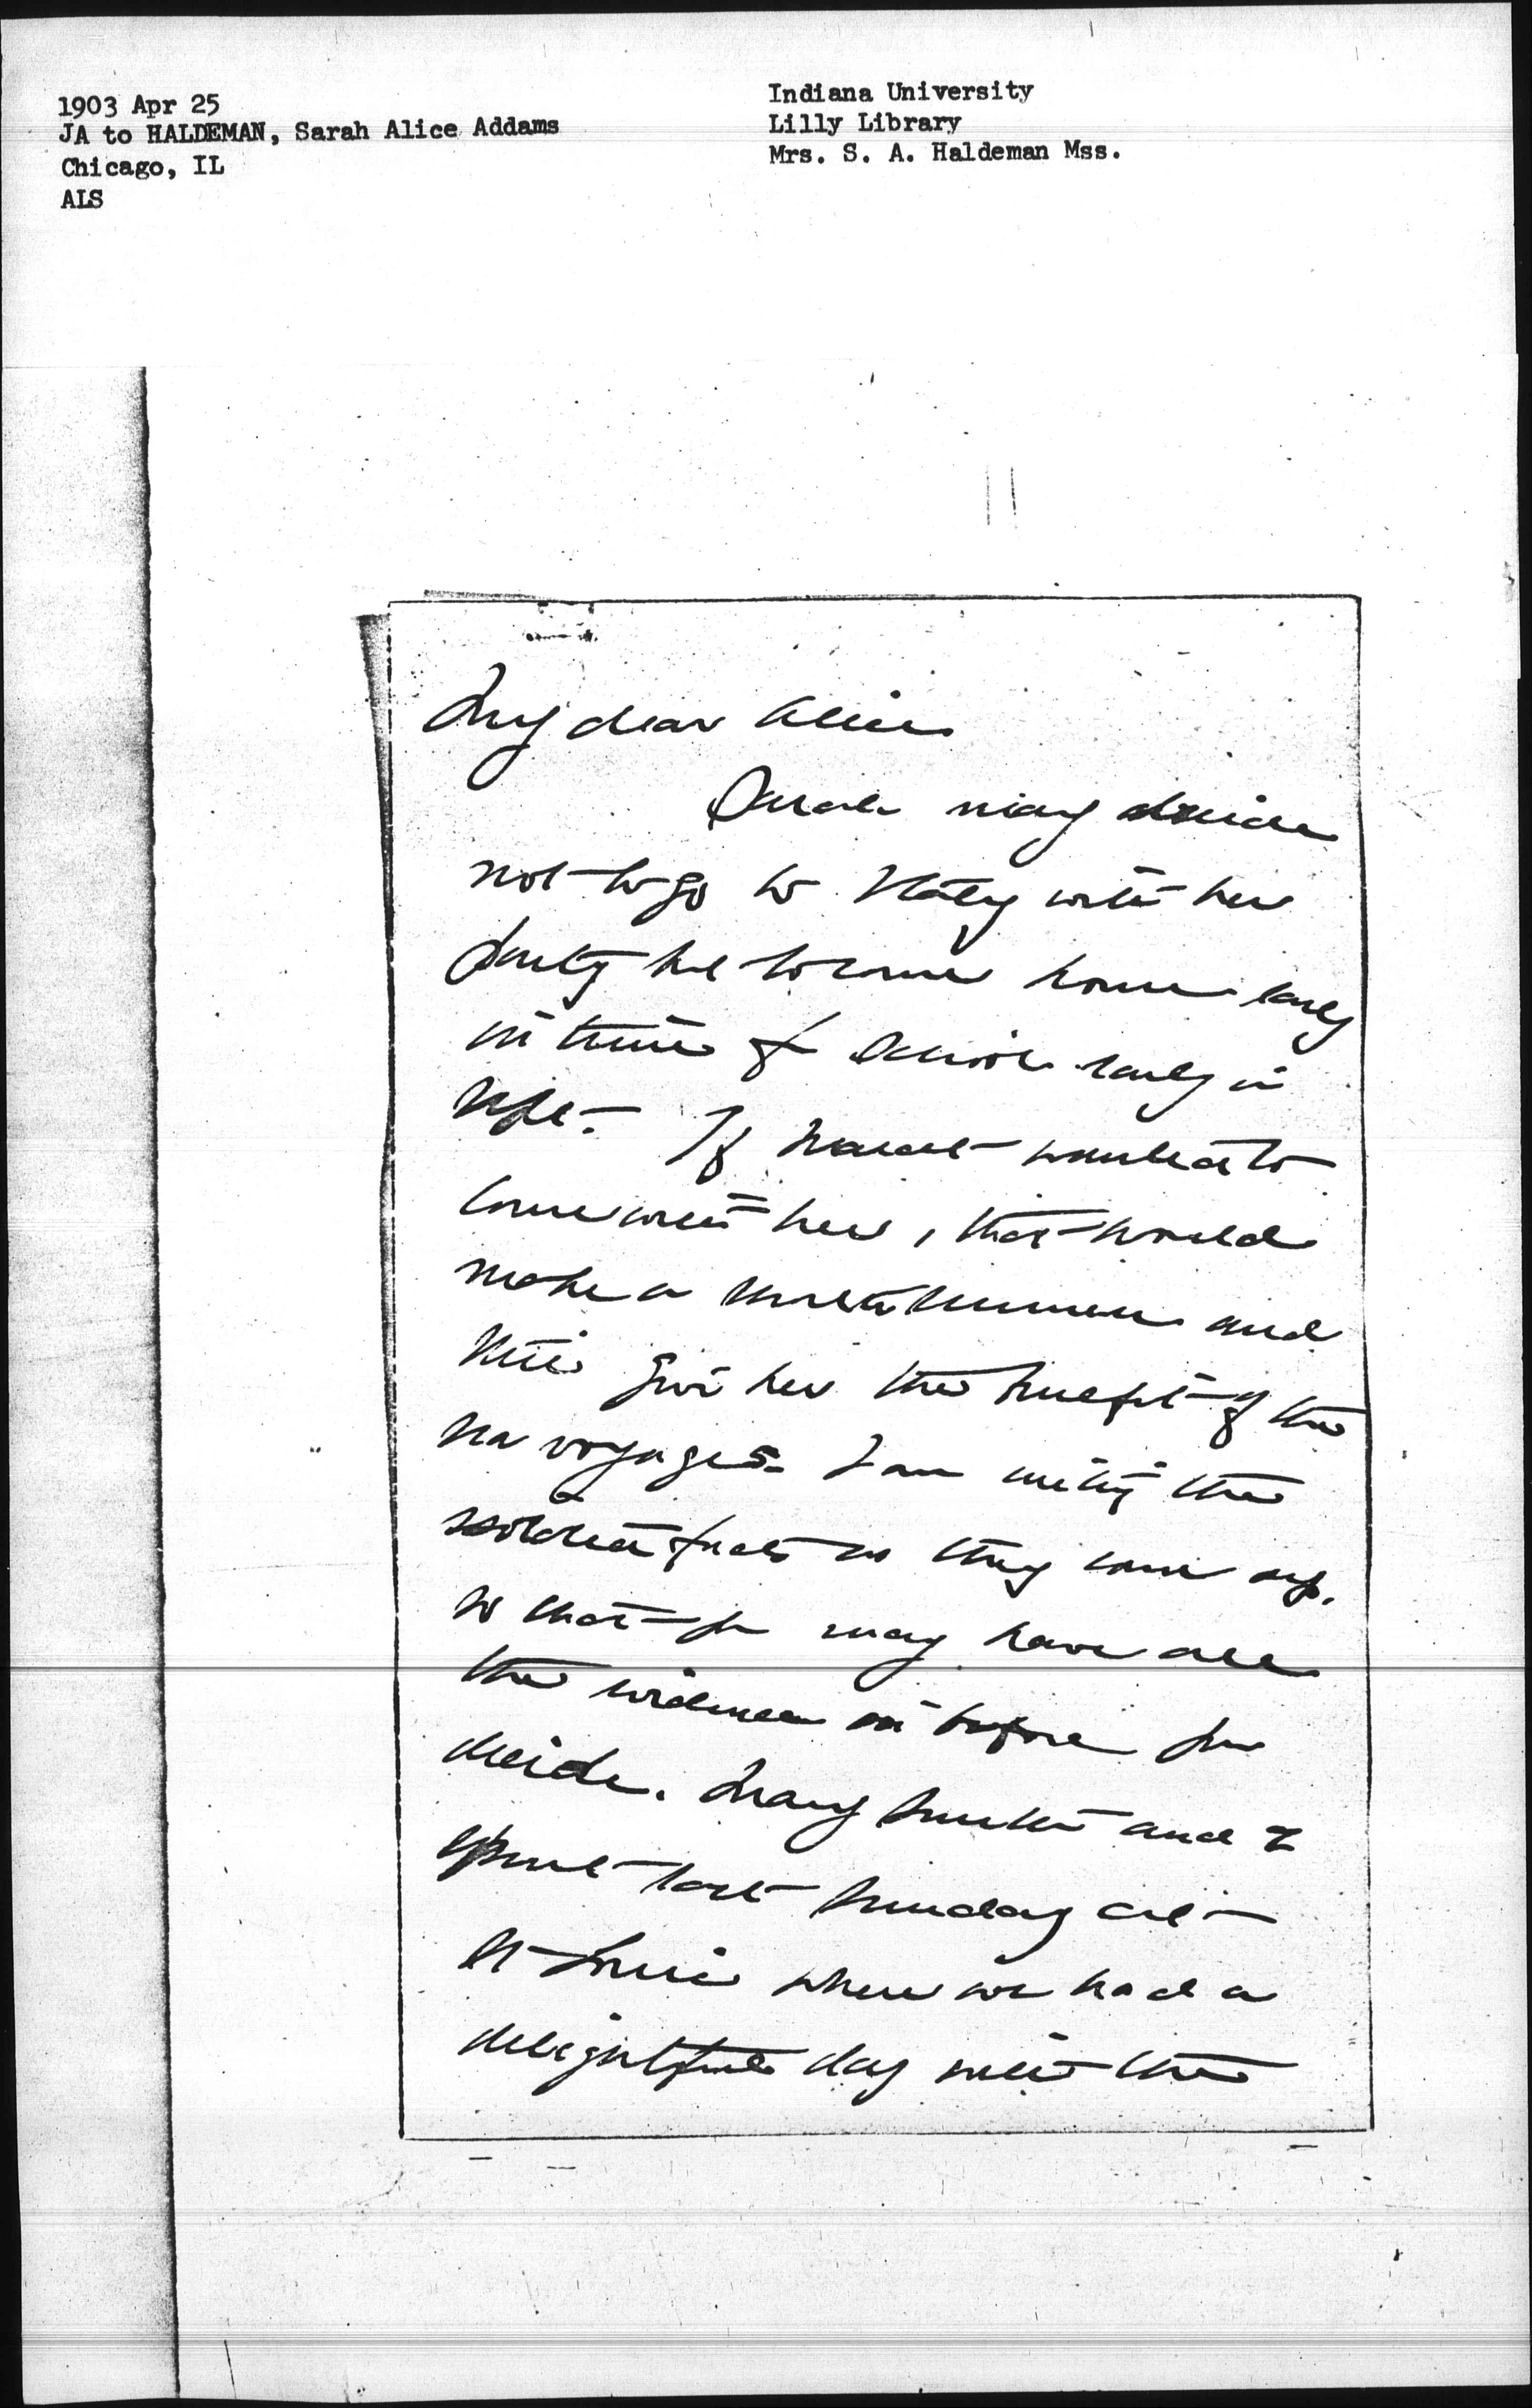 1903 Apr 25
JA to HALDEMAN, Sarah Alice Addams
Chicago, IL
ALS
Indiana University
Lilly Library
Mrs. S. A. Haldeman Mss.
My dear Alice
Sarah may decide
not to go to Italy with her
party but to come home early
in time for school early in
Sept. If Marcet wanted to
come with her, that would
make a short summer and
still give her the benefit of the
sea voyages. I am writing the
facts as they come up.
so that you may have all
the evidence in before you
decide. Mary Smith and I
spent last Sunday at
St Louis where we had a
delightful day with the